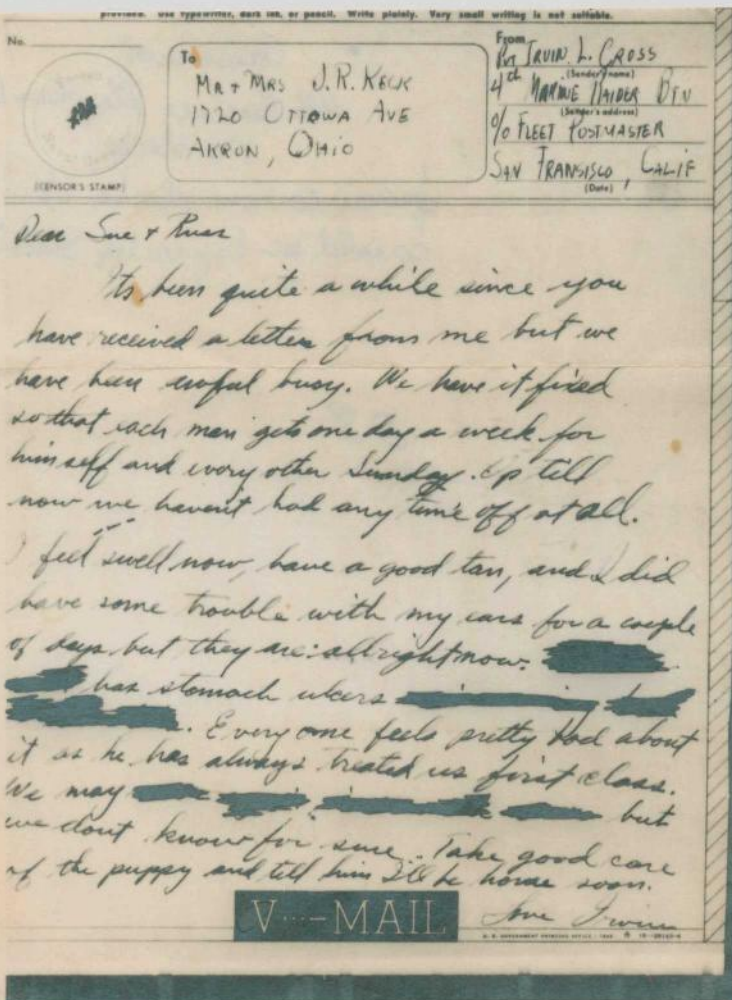 provided. Use typewriter, dark ink, or pencil. Write plainly. Very small writing is not suitable.
No.
(CENSOR'S STAMP)
To
MR + MRS J.R. KECK
1720 OTTOWA AVE
AKRON, OHIO
From
PVT IRVIN. L. CROSS
(Sender's name)
4th MARINE RAIDER BTN
(Sender's address)
c/o FLEET POSTMASTER
SAN FRANSISCO, CALIF
(Date)
Dear Sue + Russ
Its been quite a while since you
have received a letter from me but we
have been awful busy. We have it fixed
so that each man gets one day a week for
himself and every other Sunday. Up till
now we havent had any time off at all.
I feel swell now, have a good tan, and I did
have some trouble with my ears for a couple
of days but they are allright now.
has stomach ulcers
. Everyone feels pretty bad about
it as he has always treated us first class.
We may but
we dont know for sure. Take good care
of the puppy and tell him I'll be home soon.
Love Irvin
V···-MAIL
U. S. GOVERNMENT PRINTING OFFICE